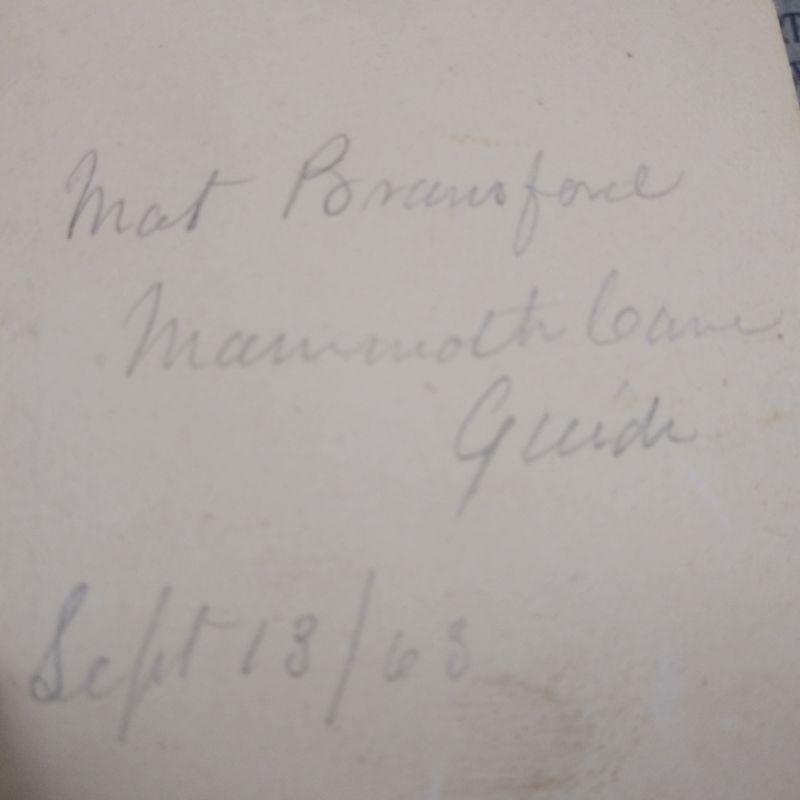 Mat Bransford
Mammoth Cave
Guide
Sept 13/63